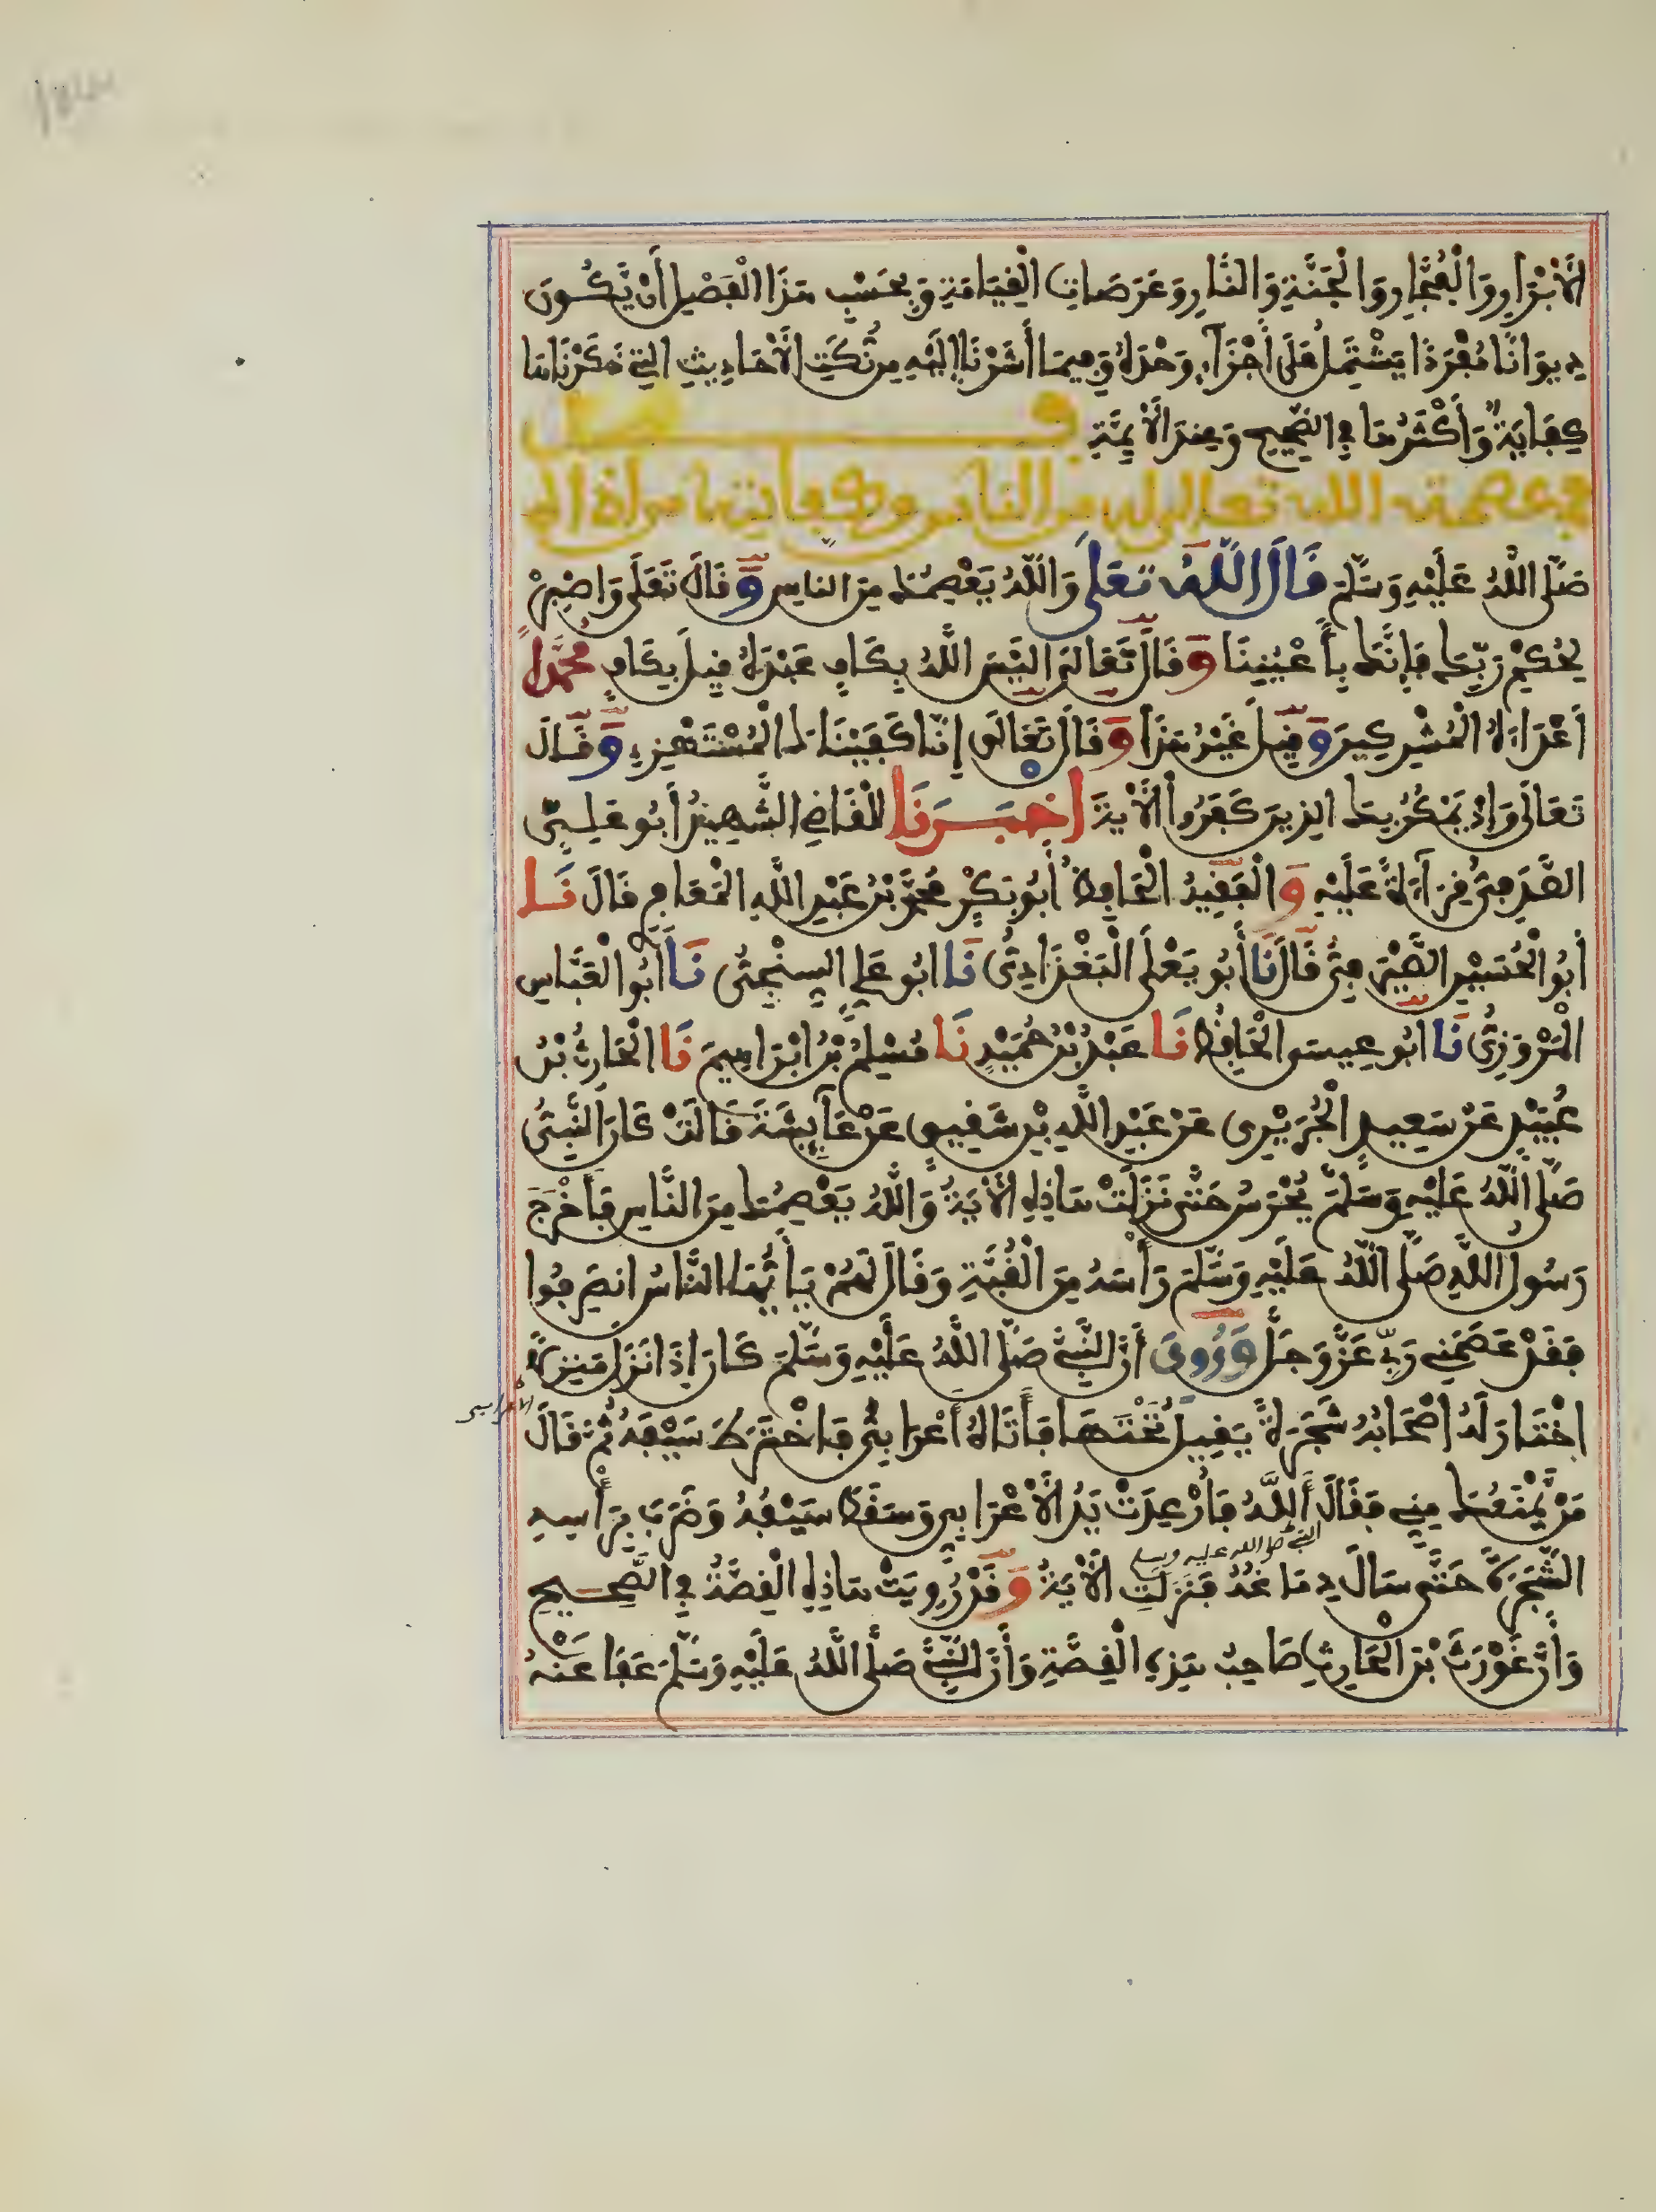 الْأَبْرَارِ وَالْفُجَّارِ وَالْجَنَّةِ وَالنَّارِ وَعَرَصَاتِ الْقِيَامَةِ وَبِحَسْبِ هَذَا الْفَصْلِ أَنْ يَّكُونَ
دِيوَانًا مُفْرَدًا يَشْتَمِلُ عَلَى أَجْزَآءٍ وَحْدَهُ وَفِيمَا أَشَرْنَا إِلَيْهِ مِن نُّكَتِ الْأَحَادِيثِ التِي ذَكَرْنَاهَا
كِفَايَةٌ وَأَكْثَرُهَا فِي الصَّحِيحِ وَعِندَ الْأَئِمَّةِ فصل
في عصمة الله تعالى له من الناس وكفايته من أذاه
صَلَّى اللَّهُ عَلَيْهِ وَسَلَّمَ قَالَ اللَّهُ تَعَلَى وَاللَّهُ يَعْصِمُكَ مِنَ النَاسِ وَقَالَ تَعَلَى وَاصْبِرْ
لِحُكْمِ رَبِّكَ فَإِنَّكَ بِأَعْيُنِنَا وَقَالَ تَعَالَى أَلَيْسَ اللَّهُ بِكَافٍ عَبْدَهُ قِيلَ بِكَافٍ مُحَمَّدًا
أَعْدَاءَهُ الْمُشْرِكِينَ وَقِيلَ غَيْرُ هَذَا وَقَالَ تَعَالَى إِنَّا كَفَيْنَاكَ الْمُسْتَهْزِءِينَ وَقَالَ
تَعَالَى وَإِذْ يَمْكُرُ بِكَ الذِينَ كَفَرُوا الْآيَةَ أخبَرَنَا الْقَاضِي الشَّهِيدُ أَبُو عَلِيٍّ
الصَّدَفِيُّ قِرَاءَةً عَلَيْهِ وَالْفَقِيهُ الْحَافِظُ أَبُو بَكْرٍ مُحَمَّدُ بْنُ عَبْدِ اللَّهِ الْمَعَافِرِي قَالَ نَا
أَبُو الْحُسَيْنِ الصَّيْرَفِيُّ قَالَ نَا أَبُو يَعْلَى الْبَغْدَادِيُّ نَا أَبُو عَلِي السِنْجِيُّ نَا أَبُو الْعَبَّاسِ
الْمَرْوَزِيُّ نَا أَبُو عِيسَى الْحَافِظُ نَا عَبْدُ بْنُ حُمَيْدٍ نَا مُسْلِمُ بْنُ إِبْرَاهِيمَ نَا الْحَارِثُ بْنُ
عُبَيْدٍ عَنْ سَعِيدٍ الْجُرَيْرِي عَنْ عَبْدِ اللَّهِ بْنِ شَقِيقٍ عَنْ عَآئِشَةَ قَالَتْ كَانَ النَّبِيُّ
صَلَّى اللَّهُ عَلَيْهِ وَسَلَّمَ يُحْرَسُ حَتَّى نَزَلَتْ هَاذِهِ الْآيَةُ وَاللَّهُ يَعْصِمُكَ مِنَ النَّاسِ فَأَخْرَجَ
رَسُولُ اللَّهِ صَلَّى اللَّهُ عَلَيْهِ وَسَلَّمَ رَأْسَهُ مِنَ الْقُبَّةِ وَقَالَ لَهُمْ يَأَيُّهَا النَّاسُ انصَرِفُوا
فَقَدْ عَصَمَنِي رَبِّي عَزَّ وَجَلَّ وَرُوِيَ أَنَّ النَّبِيَّ صَلَّى اللَّهُ عَلَيْهِ وَسَلَّمَ كَانَ إِذَا نَزَلَ مَنزِلًا
اخْتَارَ لَهُ أَصْحَابُهُ شَجَرَةً يَقِيلُ تَحْتَهَا فَأَتَاهُ أَعْرَابِيٌّ فَاخْتَرَطَ سَيْفَهُ ثُمَّ قَالَ
مَنْ يَّمْنَعُكَ مِنِّي فَقَالَ أَللَّهُ فَأُرْعِدَتْ يَدُ الْأَعْرَابِي وَسَقَطَ سَيْفُهُ وَضَرَبَ بِرَأْسِهِ
النبي صلى الله عليه وسلم
الشَّجَرَةَ حَتَّى سَالَ دِمَاغُهُ فَنَزَلَتِ الْآيَةُ وَقَدْ رُوِيَتْ هَاذِهِ الْقِصَّةُ فِي الصَّحِيحِ
وَأَنَّ غَوْرَثَ بْنَ الْحَارِثِ صَاحِبُ هَذِهِ الْقِصَّةِ وَأَنَّ النَّبِيَّ صَلَّى اللَّهُ عَلَيْهِ وَسَلَّمَ عَفَا عَنْهُ